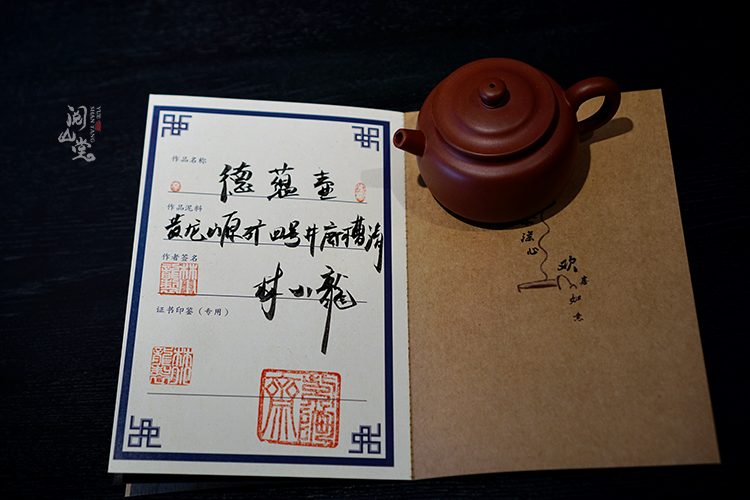 阅山堂
YUE
SHAN TANG
作品名称
德蕴壶
作品泥料
黄龙山原矿四号井底槽清
作者签名
林小龍
证书印签（专用）
深心
欢喜如意